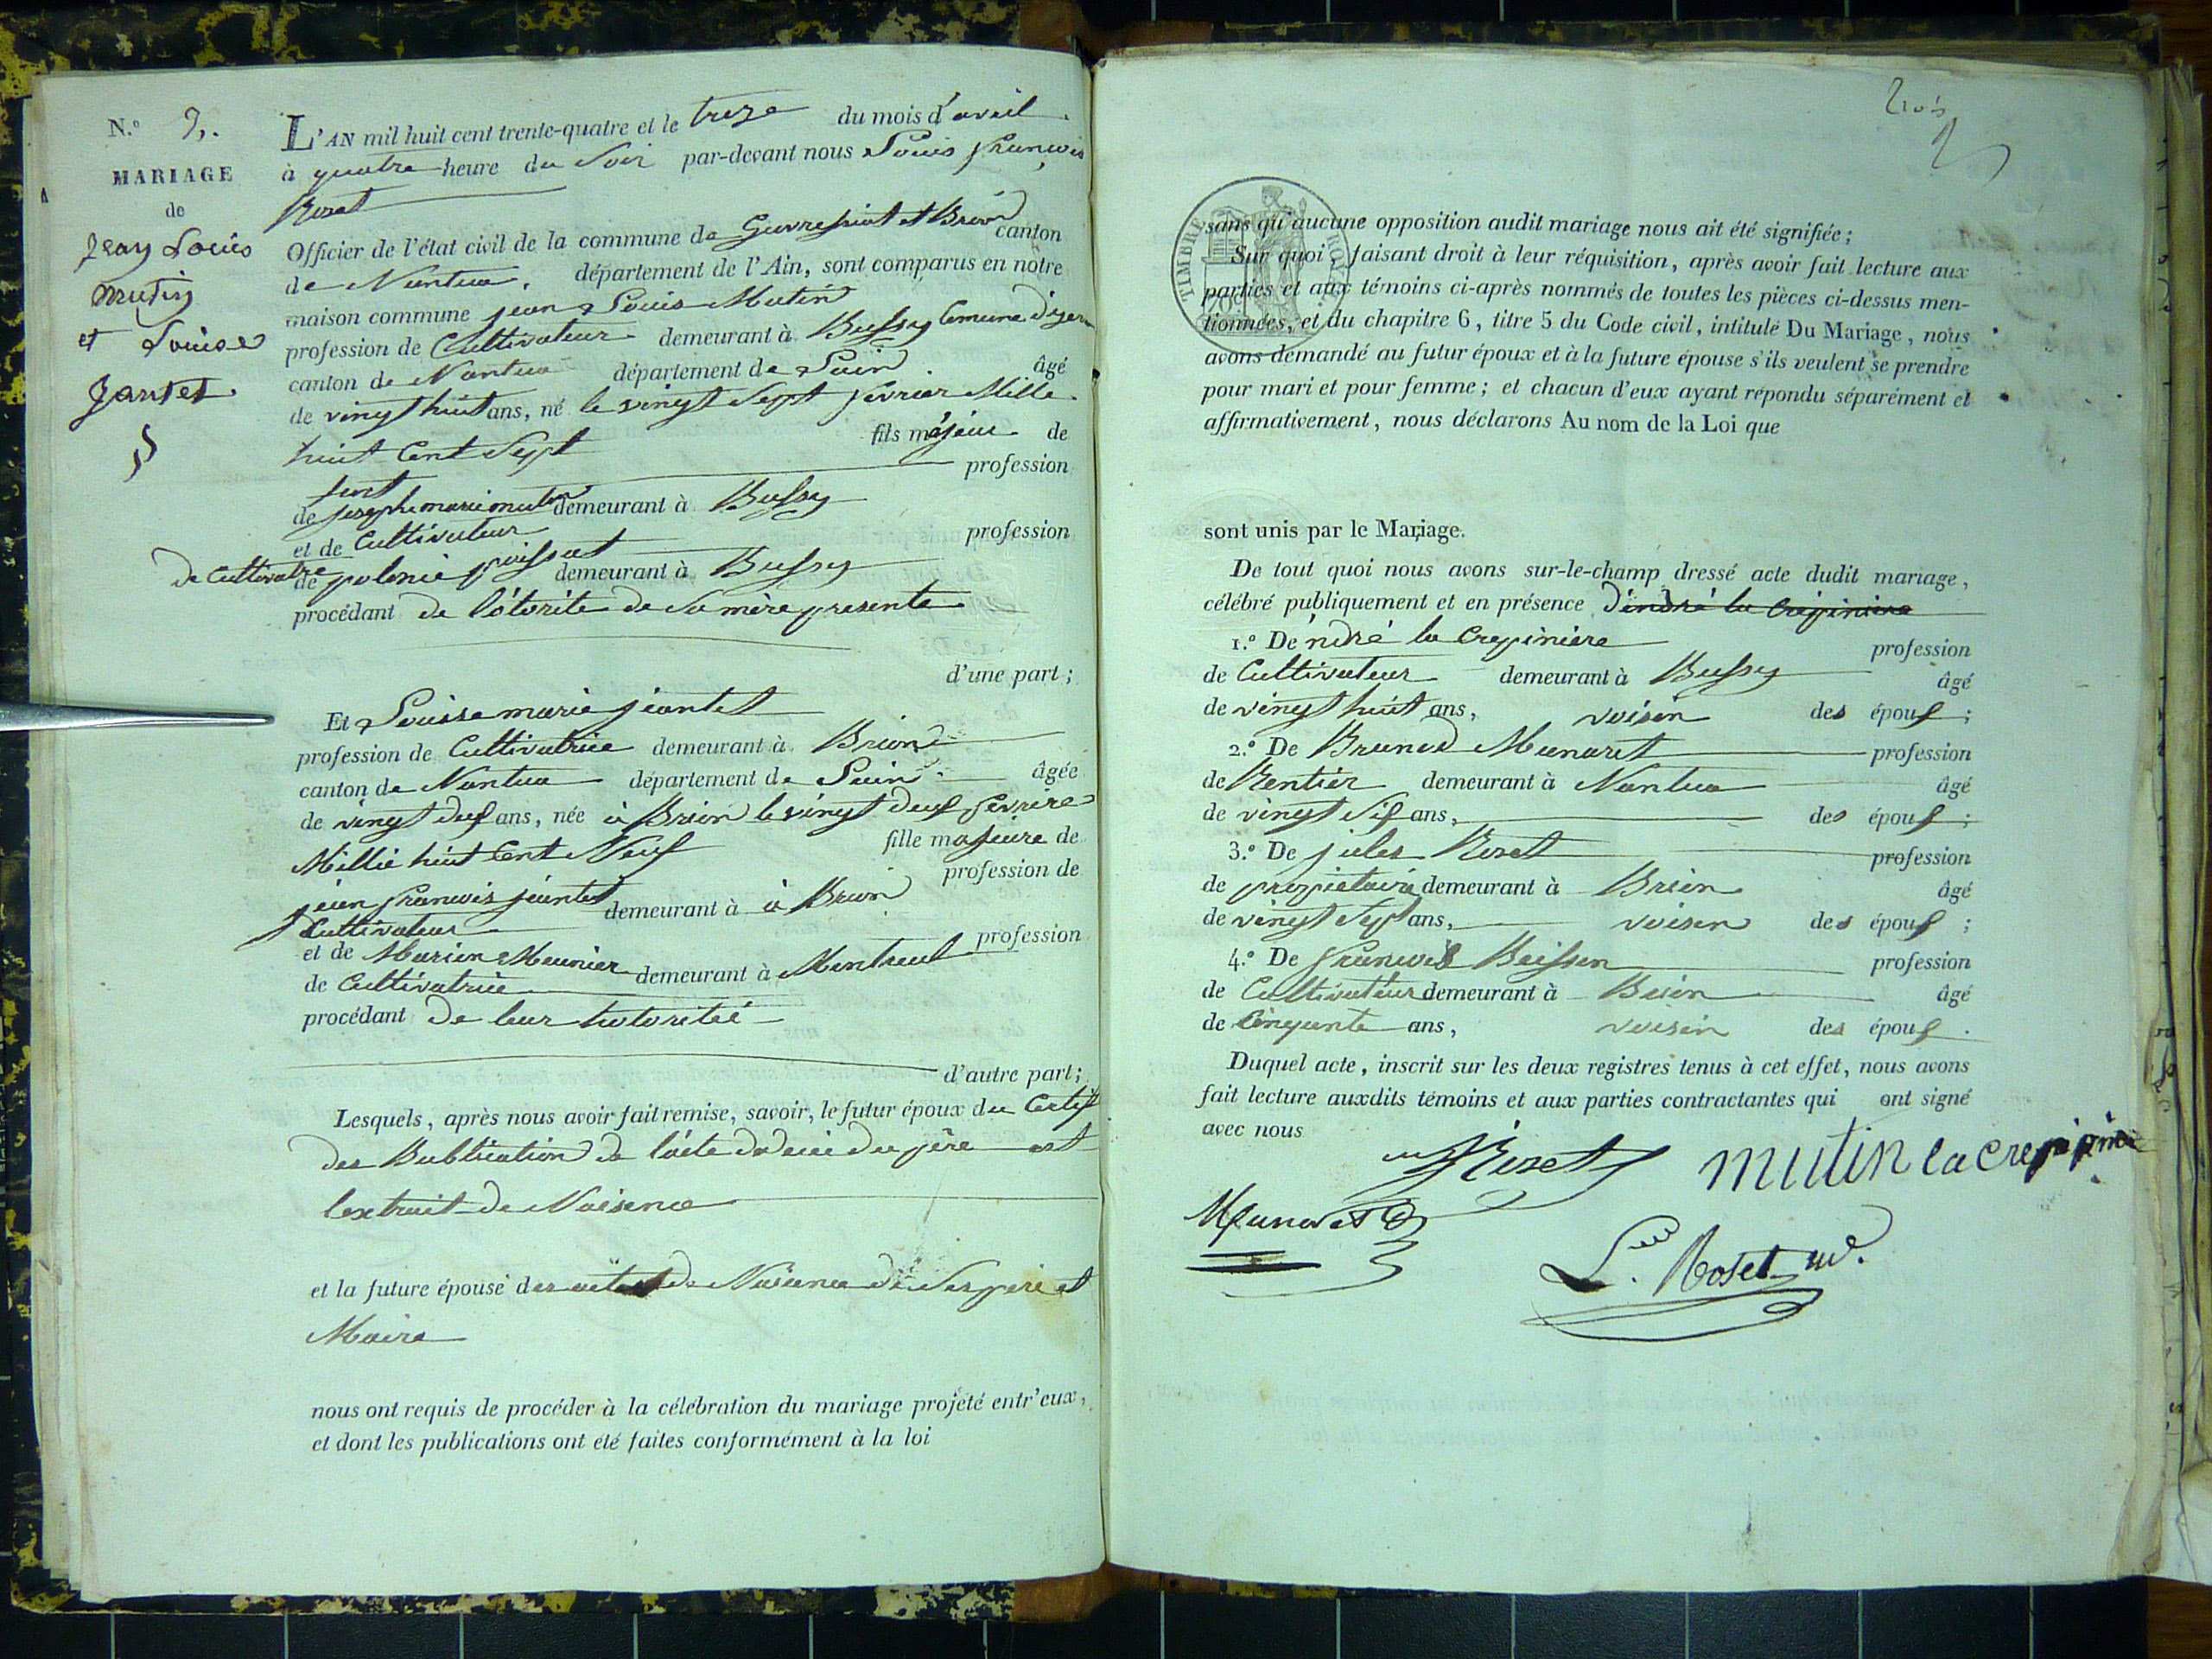 N.º 3,.
MARIAGE
de
Jean Louis
mutin
et Louise
Jantet.
L'AN mil huit cent trente-quatre et le treze du mois d'avril
à quatre heure du Soir par-devant nous Louis francois
Rozet
Officier de l'état civil de la commune de Gevressiat et Brion canton
de Nantua, département de l'Ain, sont comparus en notre
maison commune jean Louis Mutin
profession de Cultivateur demeurant à Bussy Comune d'izern
canton de Nantua département de Lain âgé
de vingt huit ans, né le vingt Sept fevrier Mille
huit Cent Sept fils majeur de
feut
de joseph marie mutin demeurant à Bussy profession
et de Cultivateur profession
de Cultivatre
de polonie poissat demeurant à Bussy
procédant de l'ótorite de Sa mère presente
d'une part;
Et Louisse marie jeantet
profession de Cultivatrice demeurant à Brion
canton de Nantua département de Lain âgée
de vingt deuf ans, née à Brion le vingt deuf fevrire
Millie huit Cent Neuf fille majeure de
jean francois jeantet demeurant à à Brion profession de
Cultivateur
et de Marien Meunier demeurant à Montreal profession
de Cultivatrice
procédant de leur hotoriteé
d'autre part;
Lesquels, après nous avoir fait remise, savoir, le futur époux du Certif
des Bublication de l'acte de deces du père est
lextrait de Naisence
et la future épouse des actes de Naisence de Ses père et
Maire
nous ont requis de procéder à la célébration du mariage projeté entr'eux,
et dont les publications ont été faites conformément à la loi
trois
TIMBRE ROYAL
sans qu'aucune opposition audit mariage nous ait été signifiée;
Sur quoi, faisant droit à leur réquisition, après avoir fait lecture aux
parties et aux témoins ci-après nommés de toutes les pièces ci-dessus men-
tionnées, et du chapitre 6, titre 5 du Code civil, intitulé Du Mariage, nous
avons demandé au futur époux et à la future épouse s'ils veulent se prendre
pour mari et pour femme; et chacun d'eux ayant répondu séparément et
affirmativement, nous déclarons Au nom de la Loi que
sont unis par le Mariage.
De tout quoi nous avons sur-le-champ dressé acte dudit mariage,
célébré publiquement et en présence d'endré la Crépiniere
1.º De ndré la Crepiniere profession
de Cultivateur demeurant à Bussy âgé
de vingt huit ans, voisin des épouf;
2.º De Brunod Munaret profession
de Rentier demeurant à Nantua âgé
de vingt Sif ans, des épouf;
3.º De jules Rozet profession
de propietaire demeurant à Brion âgé
de vingt Sept ans, voisin des épouf;
4.º De francois Buisson profession
de Cultivateur demeurant à Brion âgé
de Cinquante ans, voisin des épouf.
Duquel acte, inscrit sur les deux registres tenus à cet effet, nous avons
fait lecture auxdits témoins et aux parties contractantes qui ont signé
avec nous
Rozet mutin la crepinie
Munaret
L. Rozet